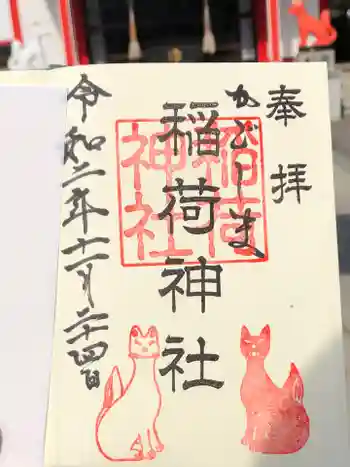 奉拝
かどしま
稲荷神社
稲荷
神社
令和二年十一月二十四日